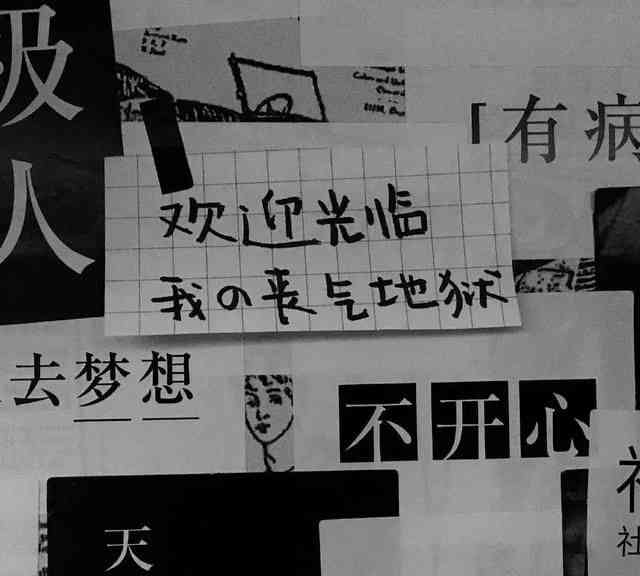 及
人
「有病
欢迎光临
我の丧气地狱
去梦想
不开心
天
社